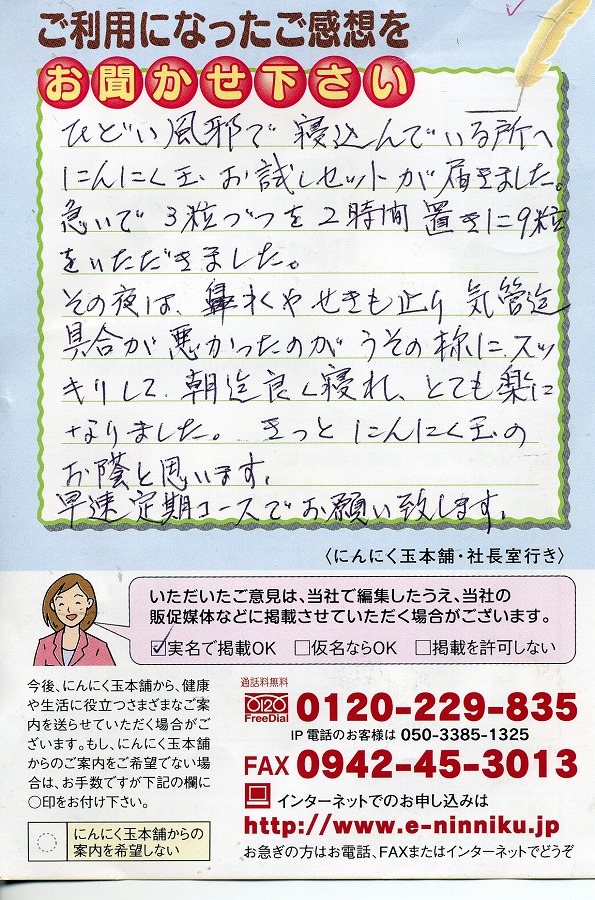 ご利用になったご感想を
お聞かせ下さい
ひどい風邪で寝込んでいる所へ
にんにく玉お試しセットが届きました。
急いで3粒づつを2時間置きに9粒
をいただきました。
その夜は、鼻水やせきも止り気管迄
具合が悪かったのがうその様にスッ
キリして、朝迄良く寝れ、とても楽に
なりました。きっとにんにく玉の
お蔭と思います。
早速定期コースでお願い致します。
〈にんにく玉本舗・社長室行き〉
いただいたご意見は、当社で編集したうえ、当社の
販促媒体などに掲載させていただく場合がございます。
☑実名で掲載OK □仮名ならOK □掲載を許可しない
今後、にんにく玉本舗から、健康
や生活に役立つさまざまなご案
内を送らせていただく場合がご
ざいます。もし、にんにく玉本舗
からのご案内をご希望でない場
合は、お手数ですが下記の欄に
○印をお付け下さい。
にんにく玉本舗からの
案内を希望しない
通話料無料
0120 FreeDial 0120-229-835
IP電話のお客様は 050-3385-1325
FAX 0942-45-3013
インターネットでのお申し込みは
http://www.e-ninniku.jp
お急ぎの方はお電話、FAXまたはインターネットでどうぞ